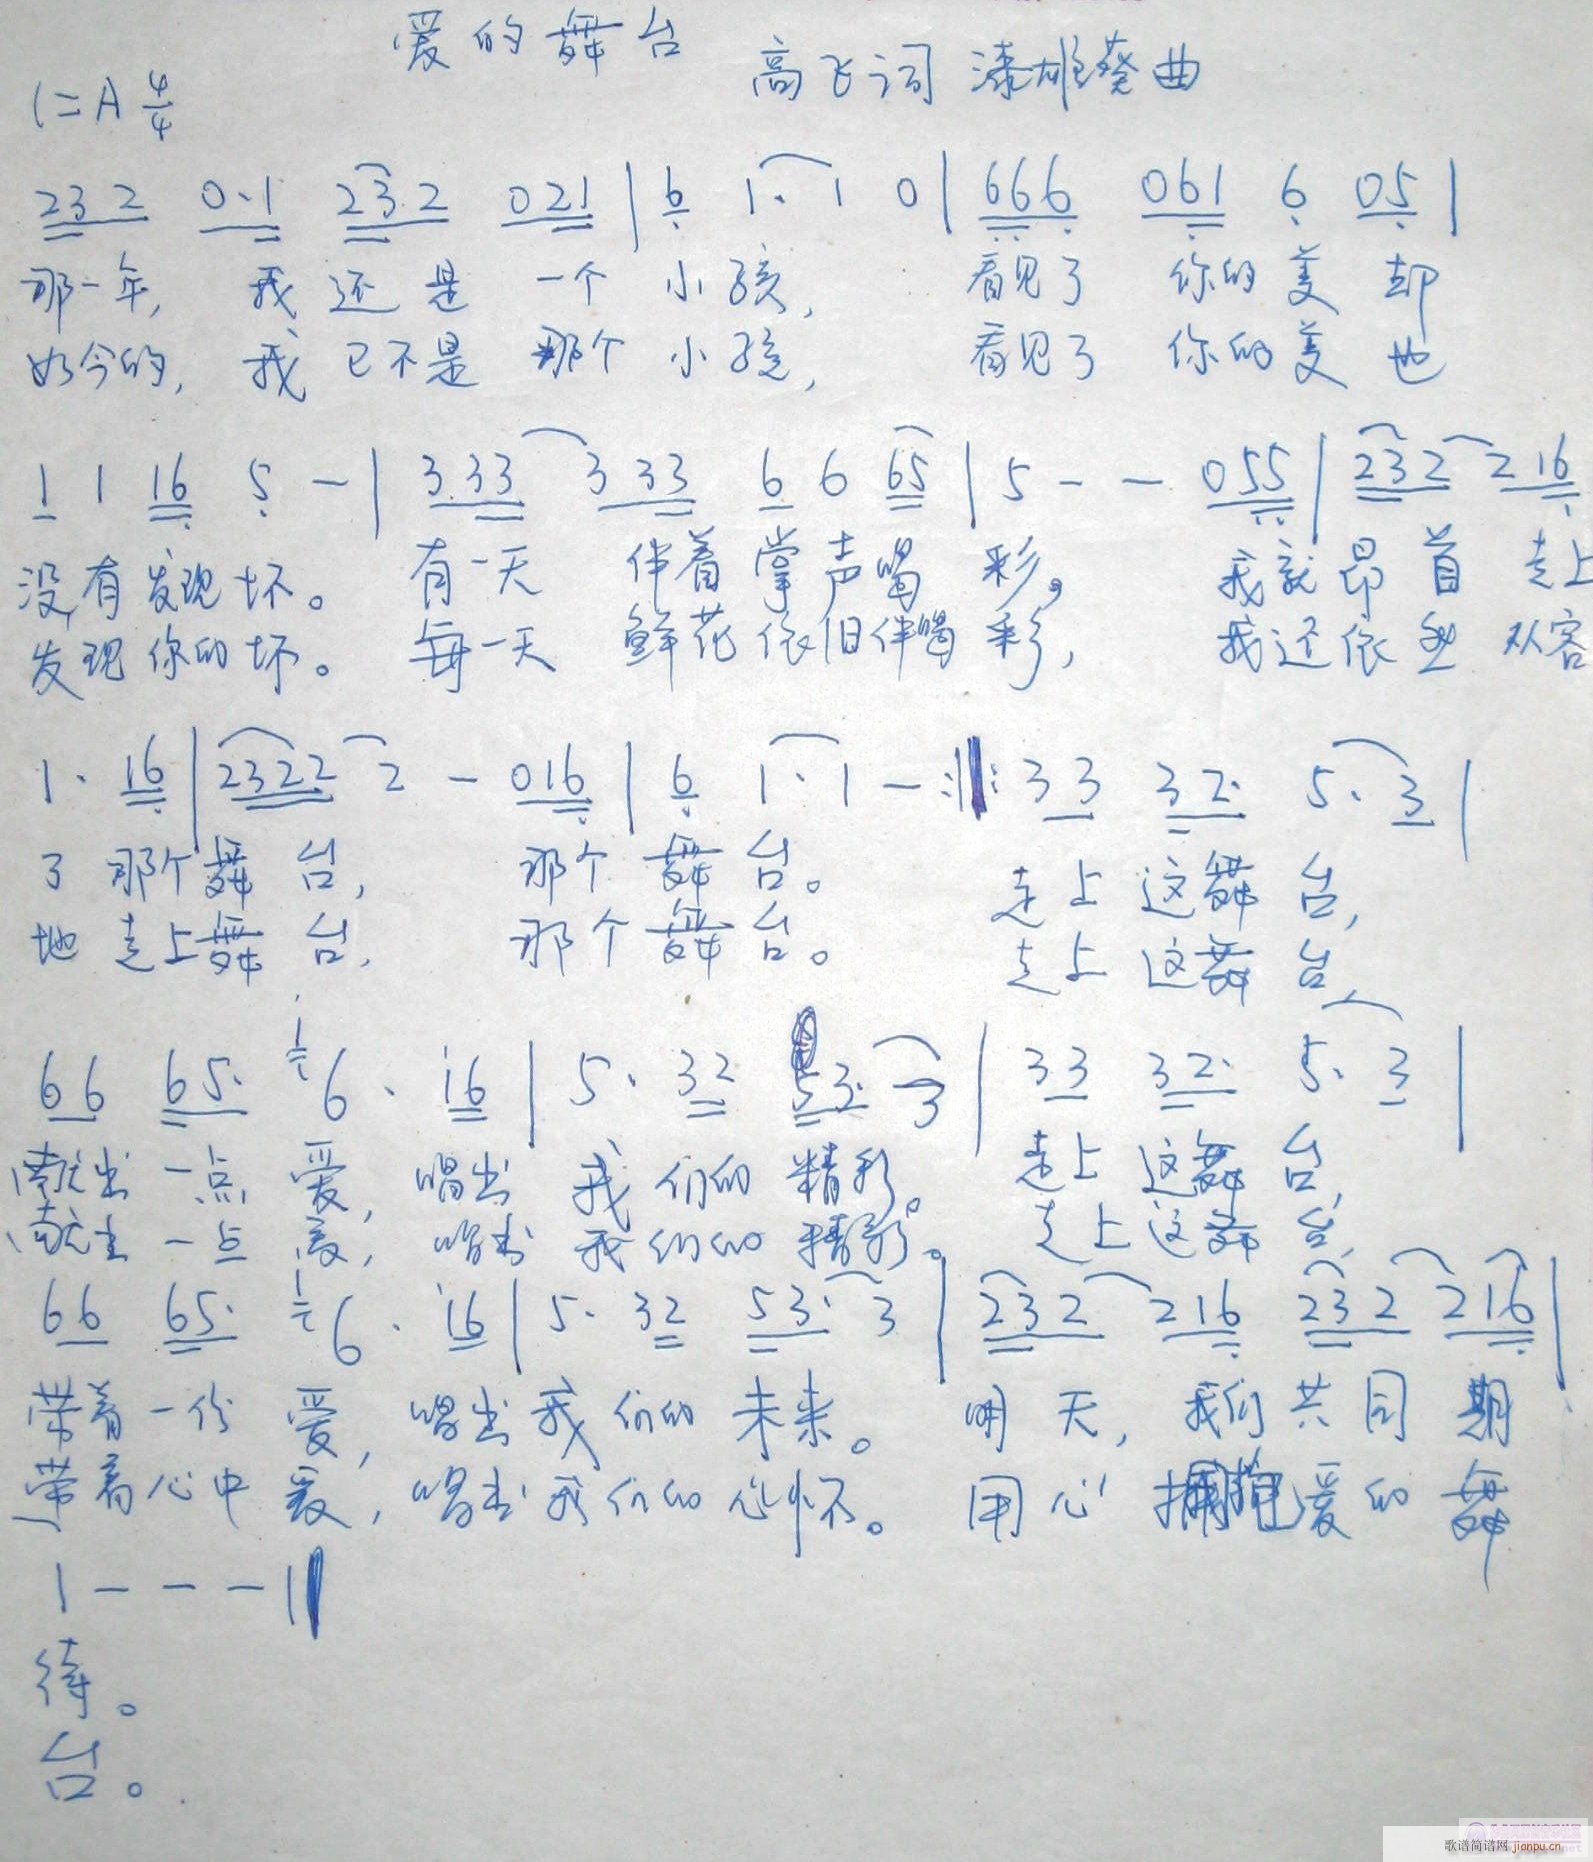 爱的舞台
高飞词 漆雄葵曲
1=A 4/4
23 2 0·1 23·2 021 | 6 1· 1 0 | 666 061 6 05 |
那一年, 我还是一个小孩, 看见了你的美却
如今的, 我已不是那个小孩, 看见了你的美也
1 1 16 5 — | 3.33 3 33 6 6 65 | 5 — — 055 | 232 2 16
没有发现坏。 有一天 伴着掌声喝彩。 我就昂首走上
发现你的坏。 每一天 鲜花依旧伴喝彩, 我还依然从容
1· 16 | 2322 2 — 016 | 6 1· 1 — :‖: 33 32· 5· 3 |
了那个舞台, 那个舞台。 走上这舞台,
地走上舞台, 那个舞台。 走上这舞台,
66 65· 1 6· 16 | 5· 32 53· 3 | 33 32· 5· 3 |
献出一点爱, 唱出我们的精彩。 走上这舞台,
献出一点爱, 唱出我们的精彩。 走上这舞台,
66 65· 1 6· 16 | 5· 32 53· 3 | 232 216 232 216 |
带着一份爱, 唱出我们的未来。 明天, 我们共同期
带着心中爱, 唱出我们的心怀。 用心拥抱爱的舞
1 — — — ‖
待。
台。
歌谱简谱网 jianpu.cn